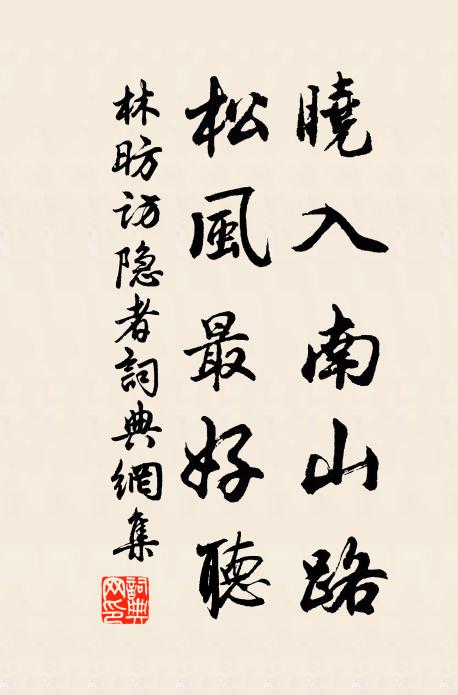 曉入南山路
松風最好聽
林昉訪隐者詞典網集
詞典
网印